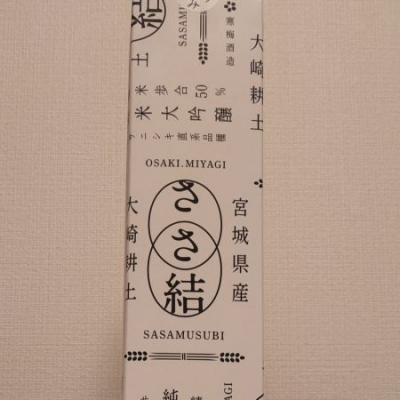 み
結
SASAM
寒梅酒造
土
大崎耕土
米歩合50%
米大吟醸
ササニシキ直系品種
OSAKI.MIYAGI
ささ結
大崎耕土
宮城県産
SASAMUSUBI
純
精
YAGI